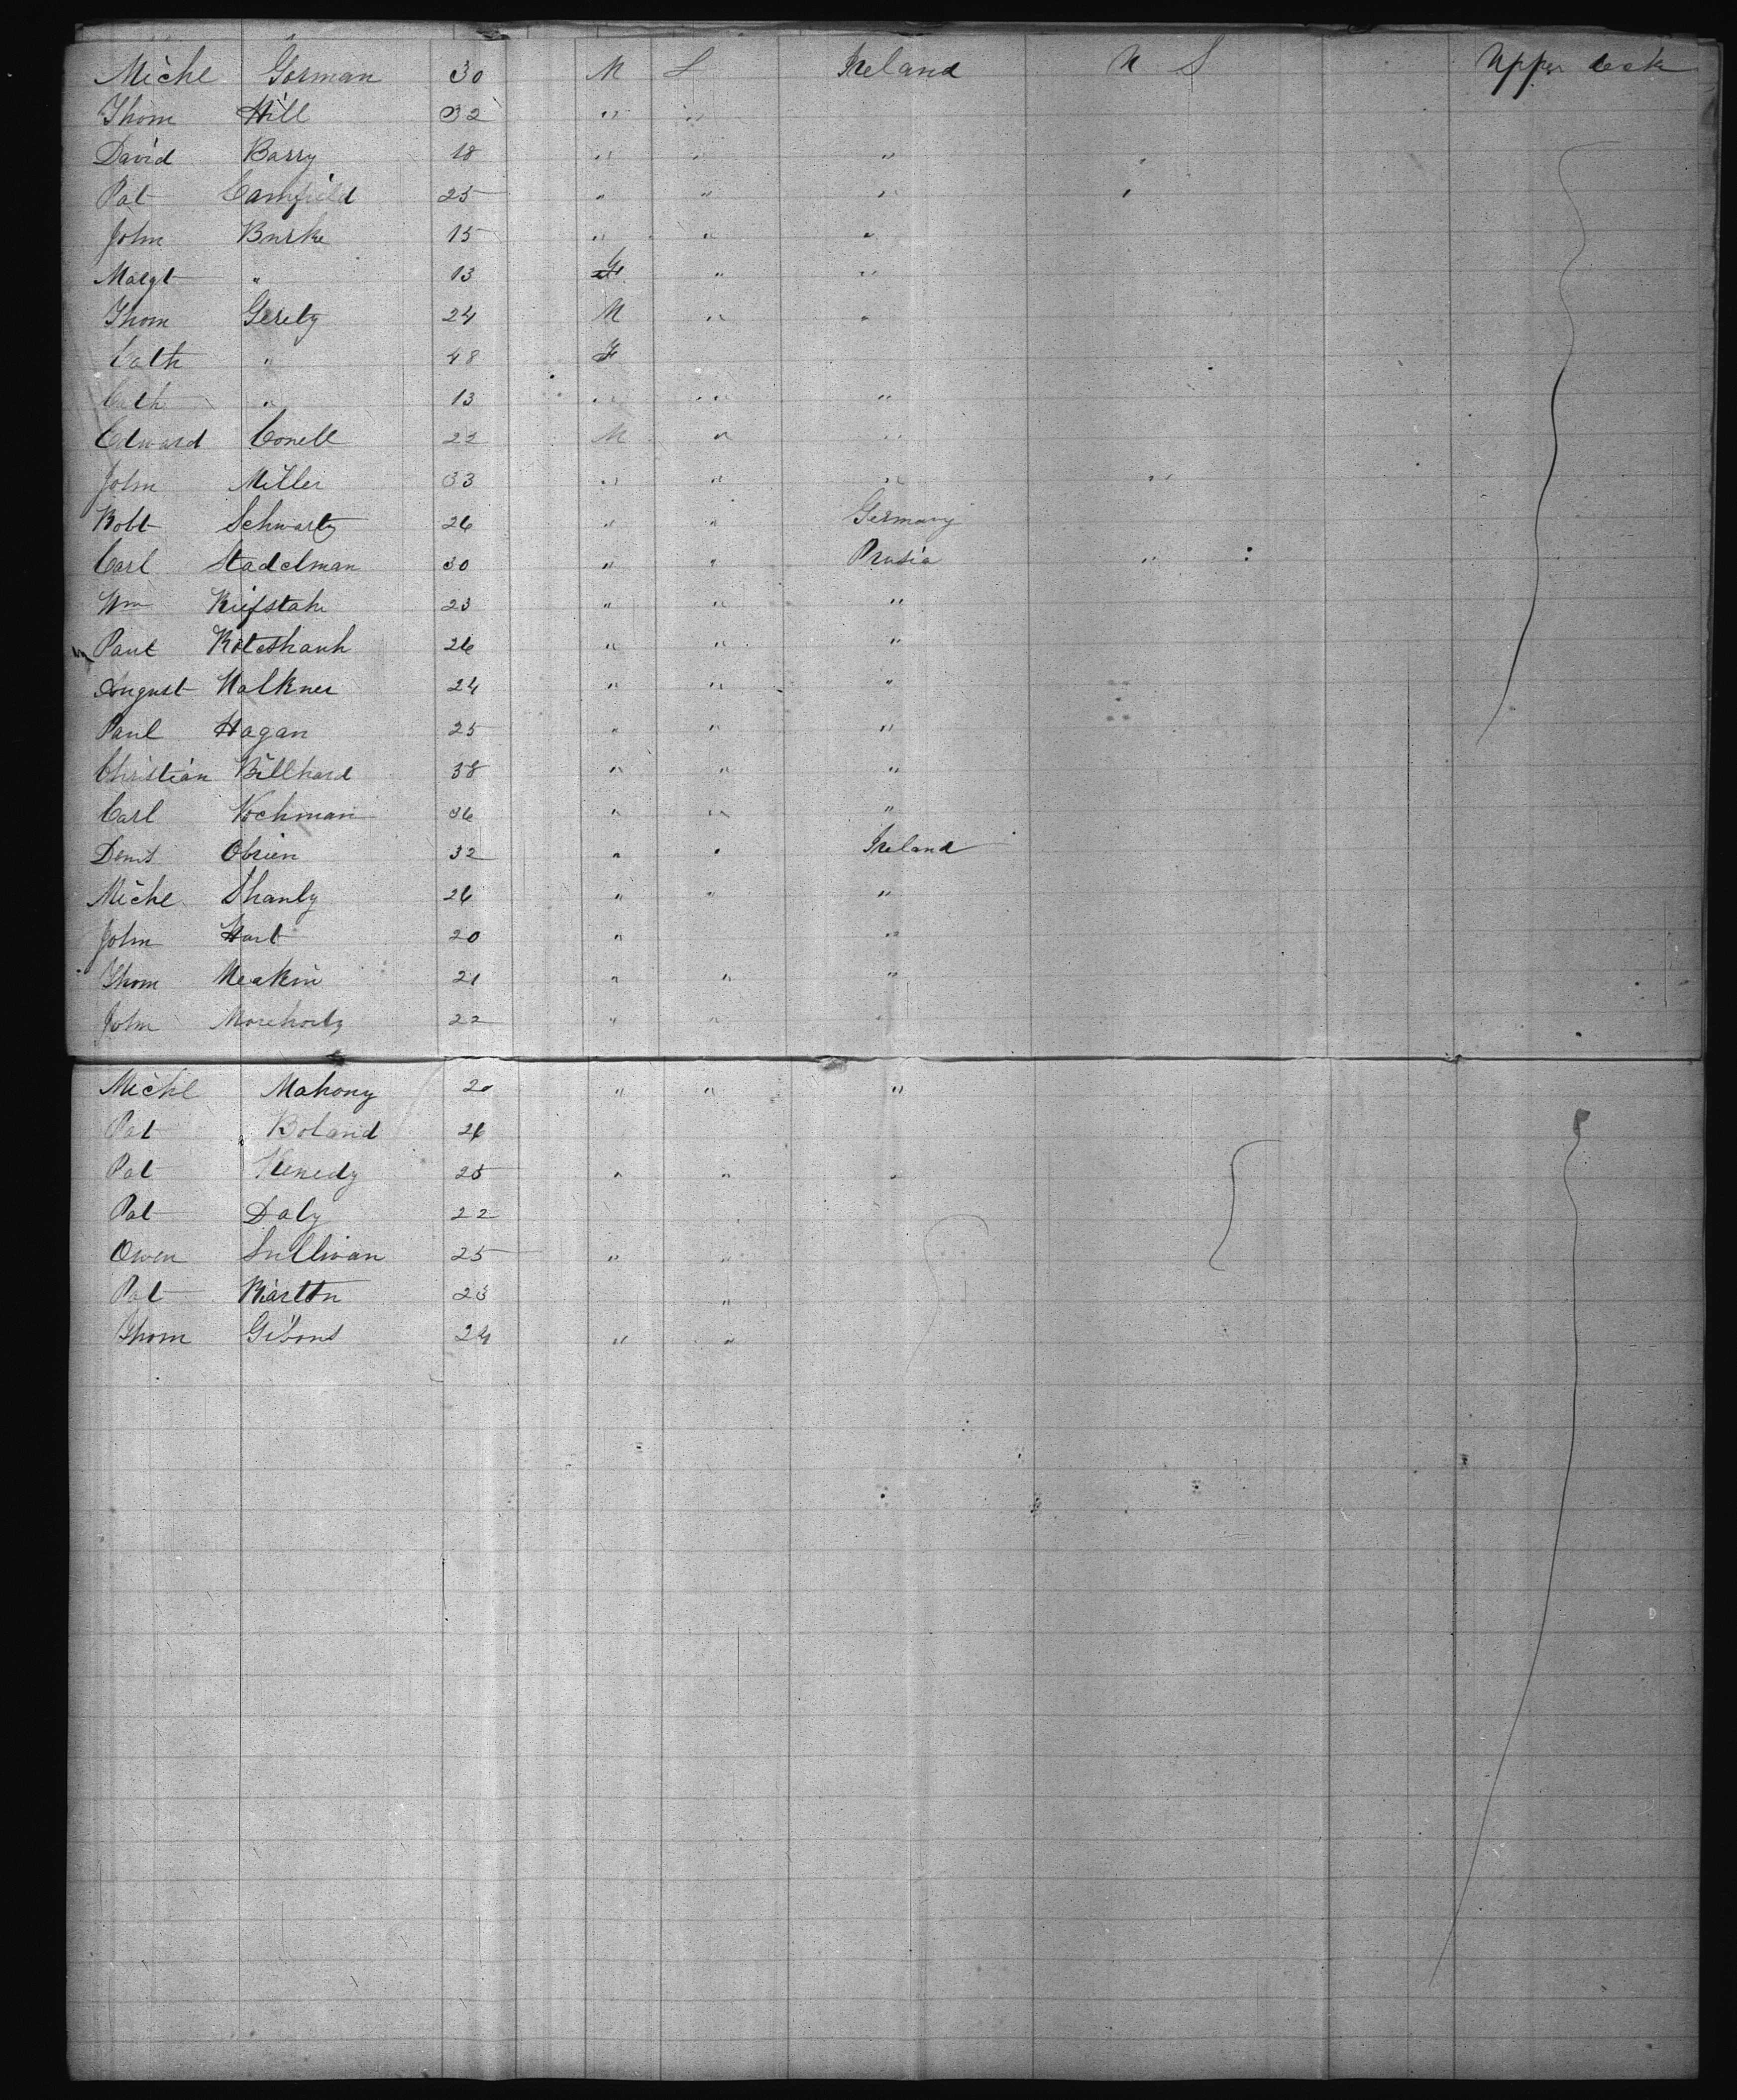 Michl Gorman 30 M L Ireland U S Upper deck
Thom Hill 32 " "
David Barry 18 " " " "
Pat Camfield 25 " " " "
John Burke 15 " " "
Margt " 13 F " "
Thom Gerety 24 M " "
Cath " 48 F
Cath " 13 " " "
Edward Conell 22 M " "
John Miller 33 " " " "
Robt Schwartz 26 " " Germany
Carl Stadelman 30 " " Prusia "
Wm Kiefstahl 23 " " "
Paul 26 " " "
August Walkner 24 " " "
Paul Hagan 25 " " "
Christian Billhard 38 " " "
Carl Kochman 36 " " "
Denis Obrien 32 " " Ireland
Michl Shanly 26 " " "
John Hart 20 " "
Thom Meakin 21 " " "
John 22 " " "
Michl Mahony 20 " " "
Pat Boland 26
Pat Kenedy 25 " " "
Pat Daly 22
Owen Sullivan 25 " "
Pat Barton 23 "
Thom Gibons 24 " "